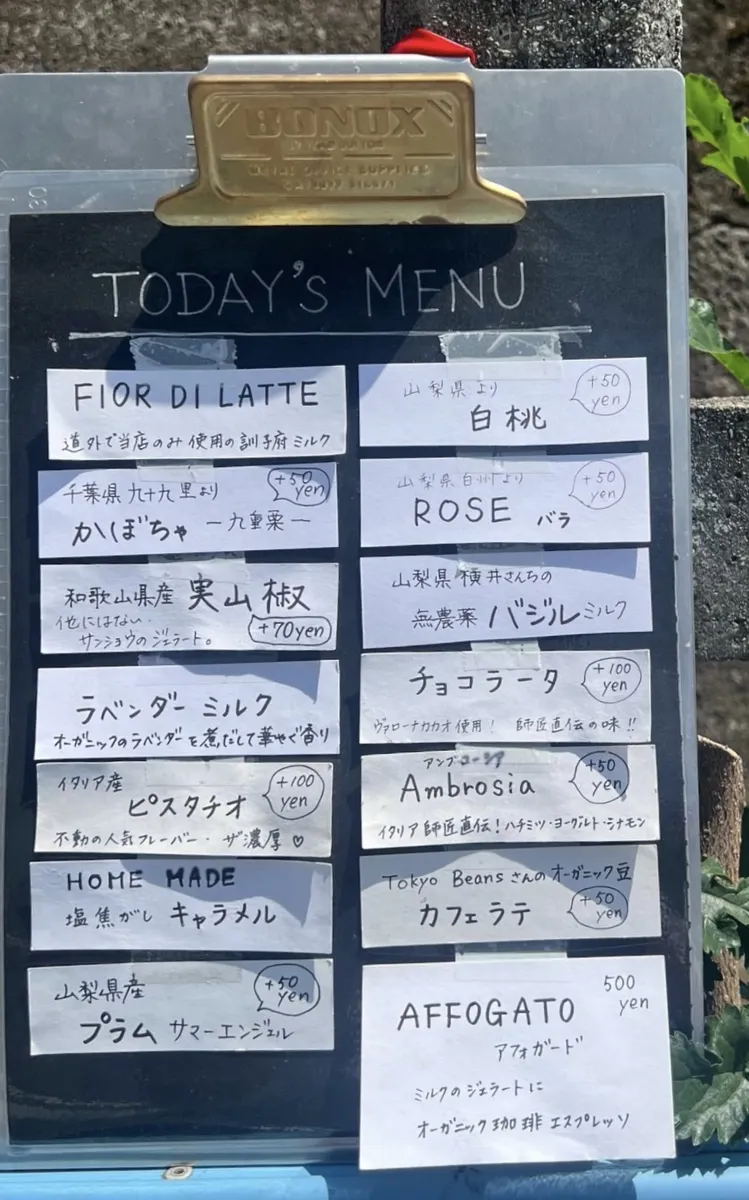 BONOX
METAL OFFICE SUPPLIES
TODAY'S MENU
FIOR DI LATTE
道外で当店のみ使用の訓子府ミルク
千葉県九十九里より
+50 yen
かぼちゃ ー九重栗ー
和歌山県産 実山椒
他にはない
サンショウのジェラート。
+70yen
ラベンダー ミルク
オーガニックのラベンダーを煮だして華やぐ香り
イタリア産
+100 yen
ピスタチオ
不動の人気フレーバー・ ザ濃厚♡
HOME MADE
塩焦がし キャラメル
山梨県産
+50 yen
プラム サマーエンジェル
山梨県より
+50 yen
白桃
山梨県白州より
+50 yen
ROSE バラ
山梨県 横井さんちの
無農薬 バジルミルク
チョコラータ
+100 yen
ヴァローナカカオ使用! 師匠直伝の味!!
アンブローシア
+50 yen
Ambrosia
イタリア師匠直伝!ハチミツ・ヨーグルト・シナモン
Tokyo Beansさんのオーガニック豆
カフェラテ
+50 yen
500 yen
AFFOGATO
アフォガード
ミルクのジェラートに
オーガニック珈琲エスプレッソ